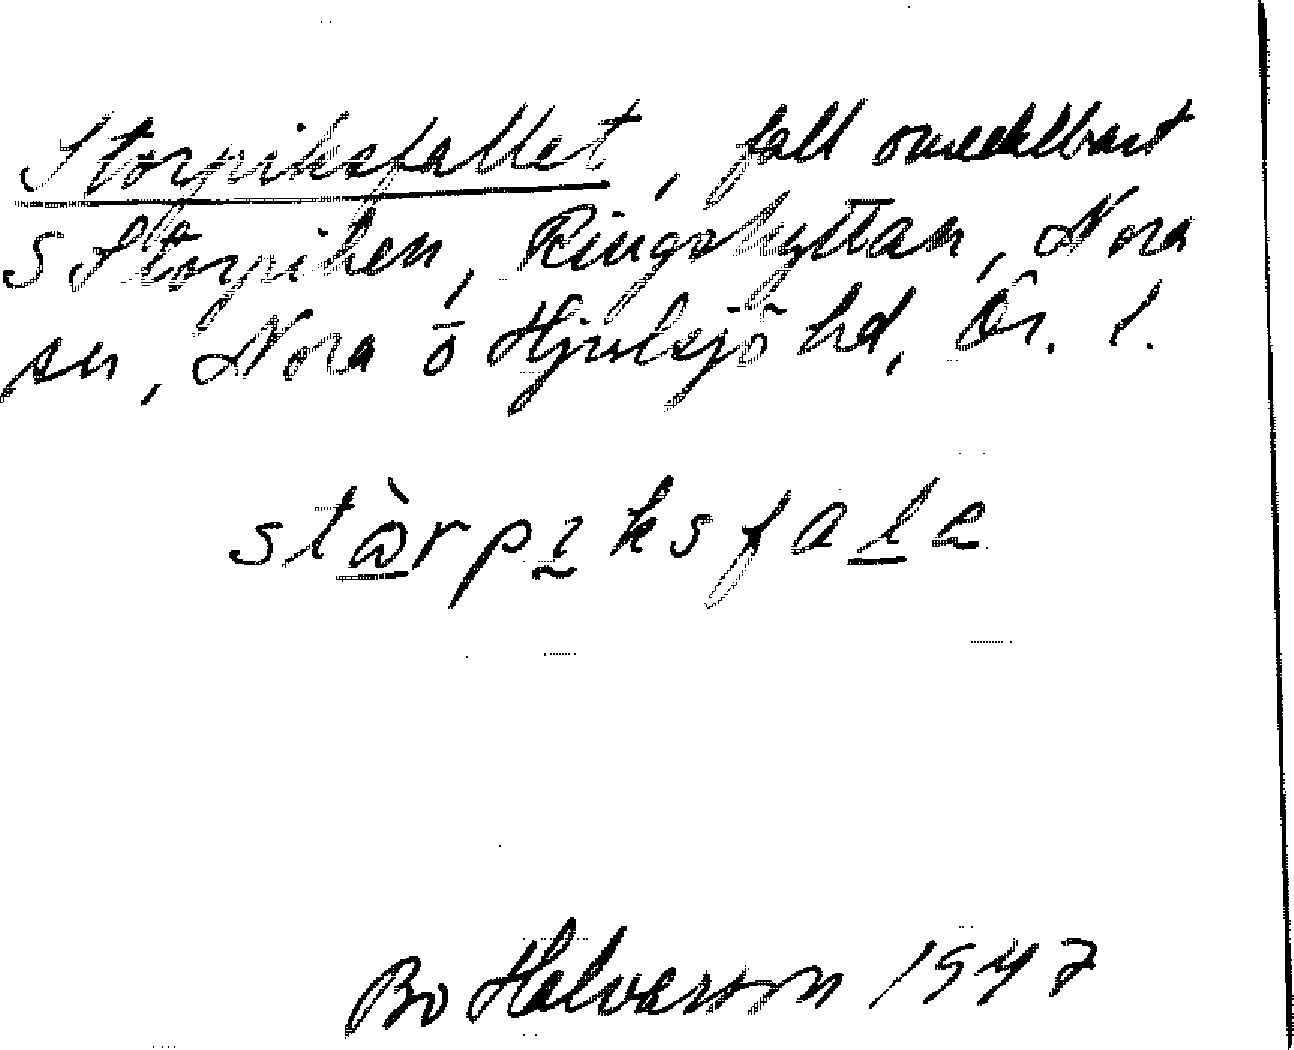 Storpiksfallet, fall omedelbart
S Storpiken, Ringshyttan, Nora
sn, Nora o Hjulsjö hd, Ör. l.
stàrpiksfalе
Bo Halvarson 1947